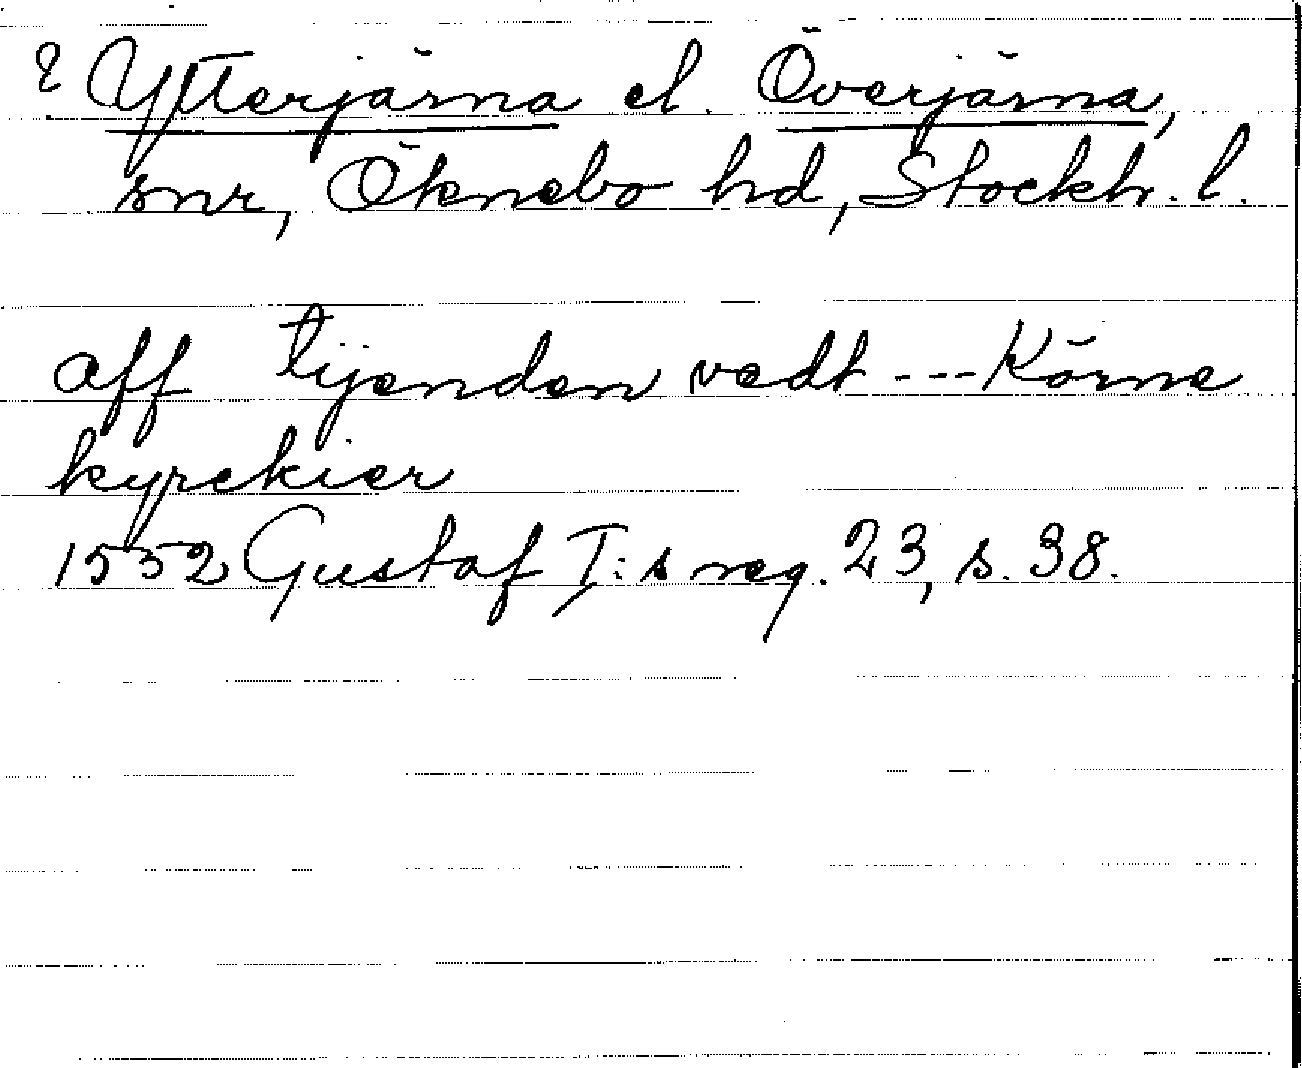 ? Ytterjärna el. Överjärna,
snr, Öknebo hd, Stockh. l.
aff tijenden vedt --- Körne
kyrckier
1552 Gustaf I:s reg. 23, s. 38.